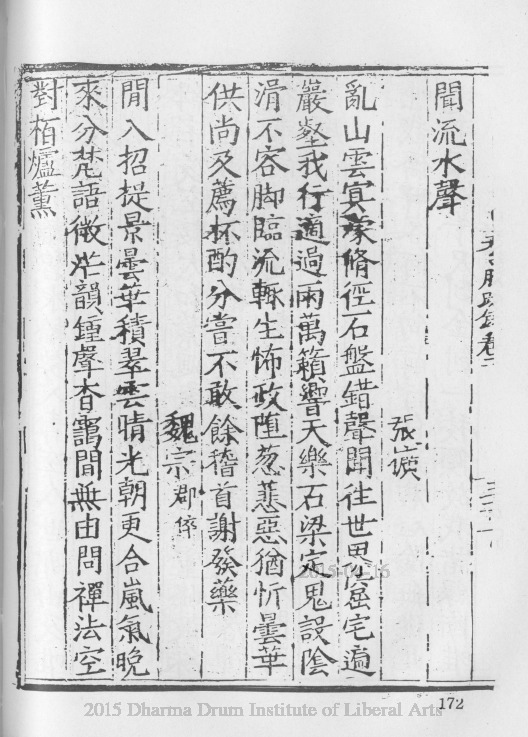 聞流水聲
張
亂山雲冥濛脩徑石盤錯聲聞往世界窟宅遍
巖壑我行適過雨萬籟響天樂石梁定鬼設陰
滑不容脚臨流輒生怖政墮葱蒜惡猶忻曇華
供尚及薦杯酌分嘗不敢餘稽首謝發藥
魏宗郡倅
閒入招提景曇華積翠雲情光朝更合嵐氣晚
來分梵語微茫韻鍾聲杳靄聞無由問禪法空
對栢爐薰
172
2015 Dharma Drum Institute of Liberal Arts